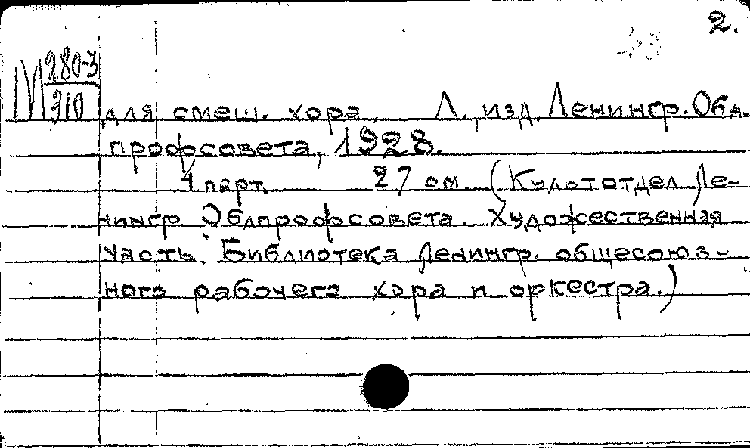 2.
М 280-3
310
для смеш. хора. Л., изд. Ленингр. Обл.
профсовета, 1928.
4 парт. 27 см. (Культотдел Ле-
нингр. Облпрофсовета. Художественная
часть. Библиотека Ленингр. общесоюз-
ного рабочего хора и оркестра.)